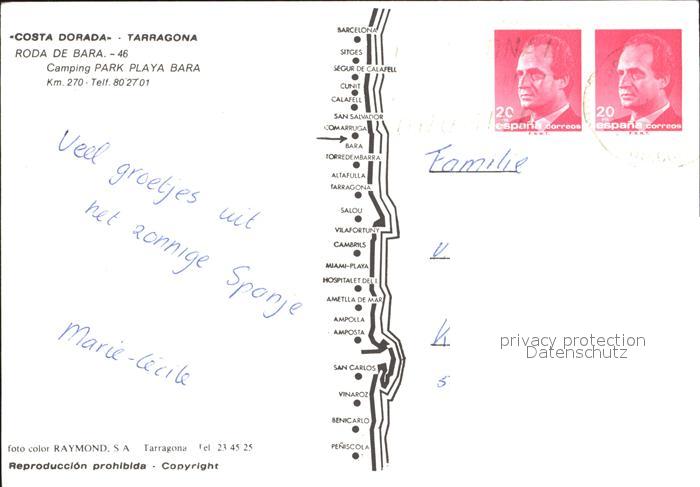 «COSTA DORADA» - TARRAGONA
RODA DE BARA. - 46
Camping PARK PLAYA BARA
Km. 270 - Telf. 80 27 01
Veel groetjes uit
het zonnige Spanje
Marie-Cécile
foto color RAYMOND, S A Tarragona Tel 23 45 25
Reproducción prohibida - Copyright
BARCELONA
SITGES
SEGUR DE CALAFELL
CUNIT
CALAFELL
SAN SALVADOR
COMARRUGA
BARA
TORREDEMBARRA
ALTAFULLA
TARRAGONA
SALOU
VILAFORTUNY
CAMBRILS
MIAMI-PLAYA
HOSPITALET DEL I.
AMETLLA DE MAR
AMPOLLA
AMPOSTA
SAN CARLOS
VINAROZ
BENICARLO
PEÑISCOLA
20 20
españa correos españa correos
F.N.M.T. F.N.M.T.
Familie
V
5
privacy protection
Datenschutz